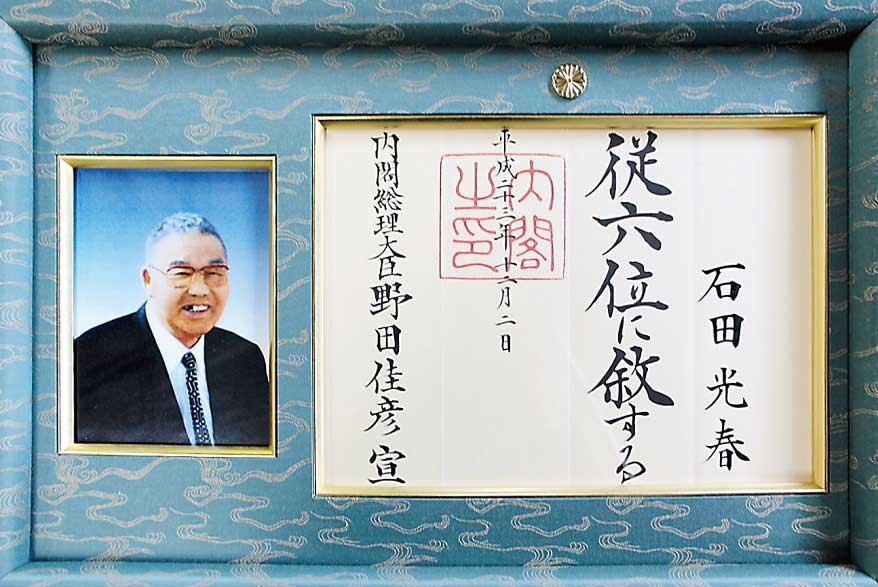 石田光春
従六位に叙する
平成二十三年十二月二日
内閣之印
内閣総理大臣野田佳彦宣